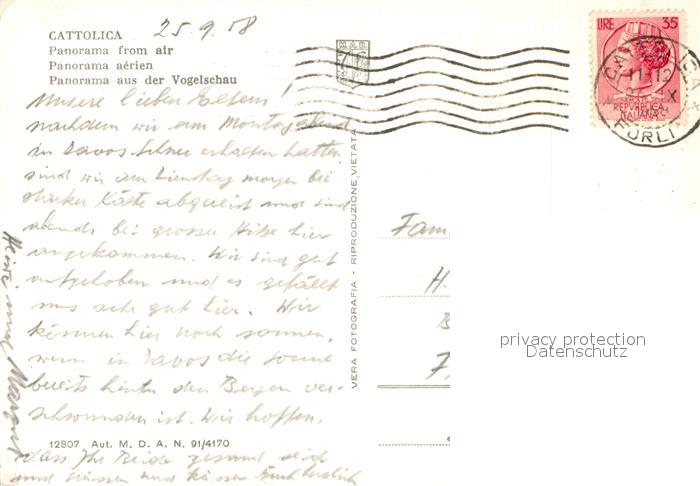 CATTOLICA 25.9.58
Panorama from air
Panorama aérien
Panorama aus der Vogelschau
Unsere lieben Eltern!
nachdem wir am Montag abend
in Davos Schnee erhalten hatten
sind wir am Dienstag morgen bei
starker Kälte abgereist und sind
abends bei grosser Hitze hier
angekommen. Wir sind gut
aufgehoben und es gefällt
uns sehr gut hier. Wir
können hier noch sonnen,
wenn in Davos die Sonne
bereits hinter den Bergen ver-
schwunden ist. Wir hoffen,
12807 Aut. M. D. A. N. 91/4170
dass Ihr Beide gesund seid
und grüssen und küssen Euch herzlich
Heini und Margrit
VERA FOTOGRAFIA - RIPRODUZIONE VIETATA
M.A.B.
LIRE 35
REPVBBLICA
ITALIANA
11-12
FORLI
Fam
H.
B
F
privacy protection
Datenschutz